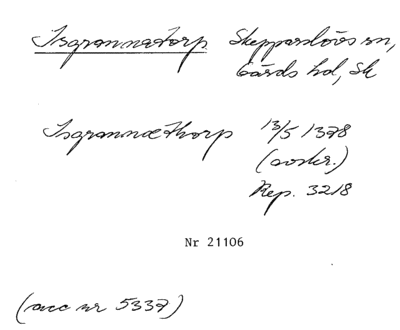 Isgrannatorp Skepparslövs sn,
Gärds hd, Sk
Isgrannæthorp 13/5 1378
(avskr.)
Rep. 3218
Nr 21106
(acc nr 5337)